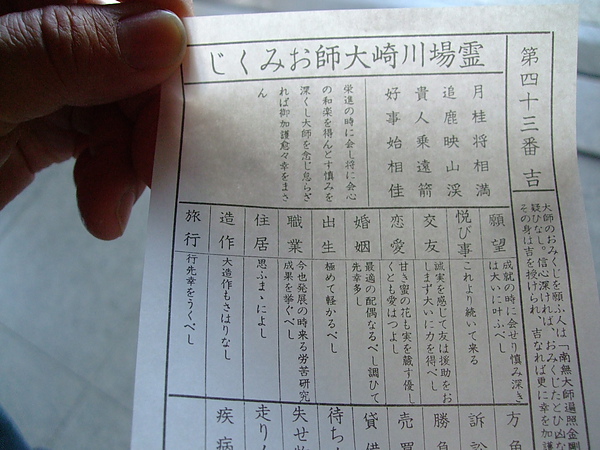 霊場川崎大師おみくじ
第四十三番 吉
大師のおみくじを願ふ人は「南無大師遍照金剛
疑ひなし。信心深ければ、おみくじたとひ凶な
その身は吉を授けられ、吉なれば更に幸を加護
月桂将相満
追鹿映山渓
貴人乗遠箭
好事始相佳
栄進の時に会し将に会心
の和楽を得んとす慎みを
深くし大師を念じ怠らざ
れば御加護愈々幸をまさ
ん
願望
成就の時に会せり慎み深き
は大いに叶ふべし
悦び事
これより続いて来る
交友
誠実を感じて友は援助をお
しまず大いに力を得べし
恋愛
甘き蜜の花も実を蔵す優し
くとも愛はつよし
婚姻
最適の配偶なるべし調ひて
先幸多し
出生
極めて軽かるべし
職業
今也発展の時来る労苦研究
成果を挙ぐべし
住居
思ふまゝによし
造作
大造作もさはりなし
旅行
行先幸をうくべし
方角
訴訟
勝負
売買
貸借
待ち
失せ
走り
疾病